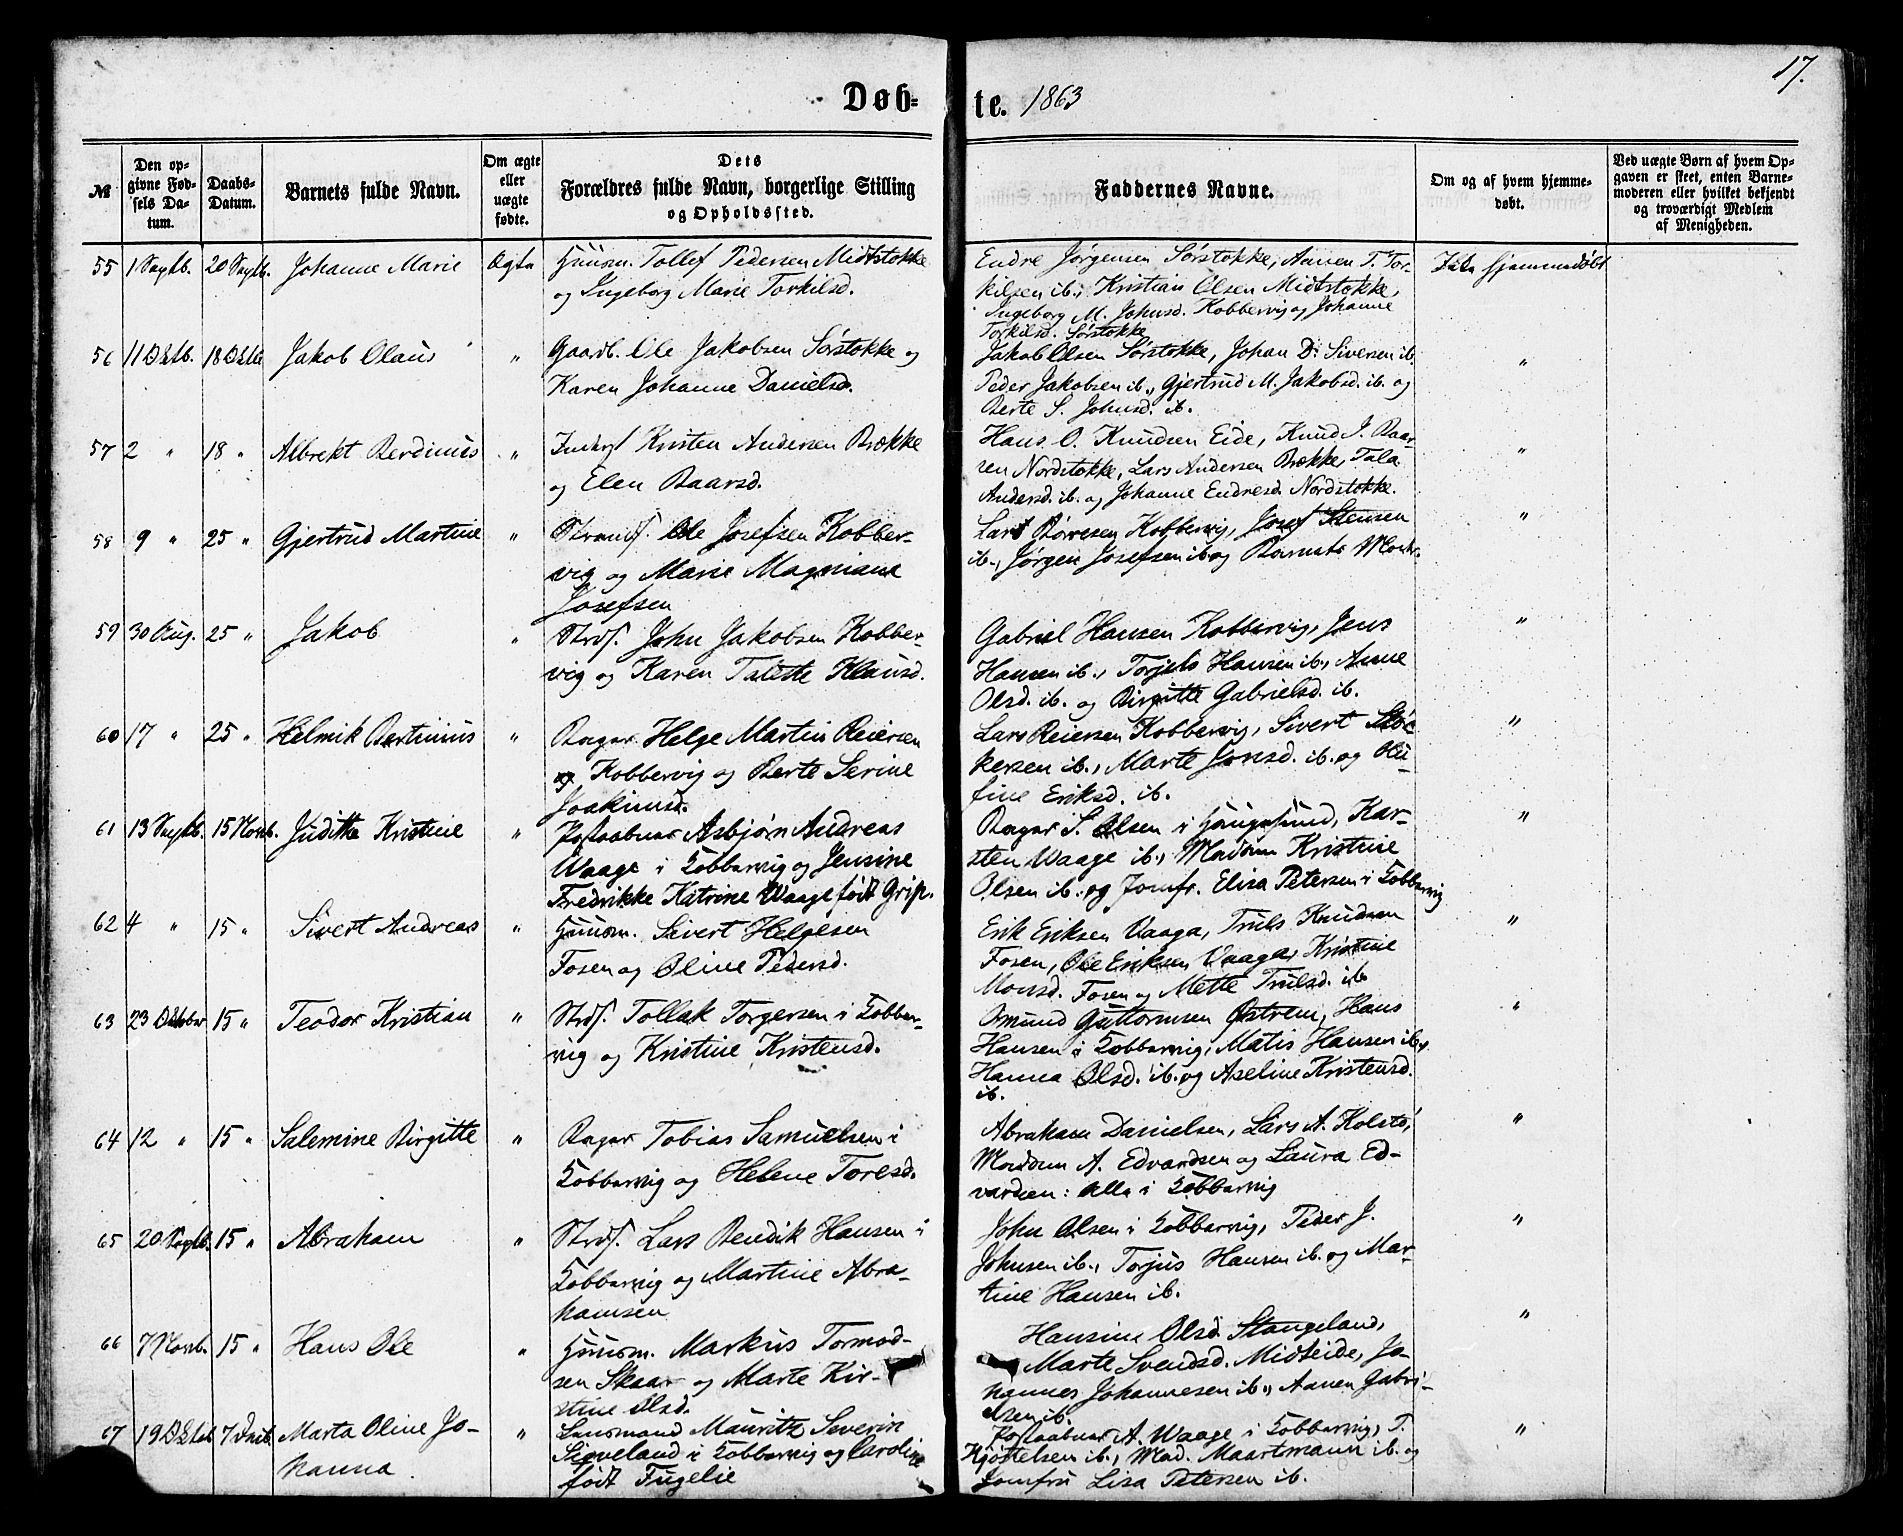 17.
Døb-
te. 1863
№
Den op-
givne Fød-
sels Da-
tum.
Daabs-
Datum.
Barnets fulde Navn.
Om ægte
eller
uægte
fødte.
Dets
Forældres fulde Navn, borgerlige Stilling
og Opholdssted.
Faddernes Navne.
Om og af hvem hjemme-
døbt.
Ved uægte Børn af hvem Op-
gaven er skeet, enten Barne-
moderen eller hvilket bekjendt
og troværdigt Medlem
af Menigheden.
55 1 Septb. 20 Septb. Johanne Marie Ægte
Huusm. Tollef Pedersen Midtstokke
og Ingeborg Marie Torkilsd.
Endre Jørgensen Sørstokke, Aanen T. Tor-
kilsen ib., Kristian Olsen Midtstokke,
Ingeborg M. Johnsd. Kobbervig og Johanne
Torkilsd. Sørstokke
Ikke hjemmedøbt
56 11 Oktb. 18 Oktb. Jakob Olaus "
Gaardb. Ole Jakobsen Sørstokke og
Karen Johanne Danielsd.
Jakob Olsen Sørstokke, Johan D. Siversen ib.
Peder Jakobsen ib., Gjertrud M. Jakobsd. ib. og
Berte S. Johnsd. ib.
"
57 2 " 18 " Albrekt Berdinus "
Inderst Kristen Andersen Brække
og Elen Baarsd.
Hans O. Knudsen Eide, Knud J. Baar-
sen Nordstokke, Lars Andersen Brække, Tala
Andersd. ib. og Johanne Endresd. Nordstokke.
"
58 9 " 25 " Gjertrud Martine "
Strands. Ole Josefsen Kobber-
vig og Marie Magniane
Josefsen
Lars Børresen Kobbervig, Josef Stensen
ib., Jørgen Josefsen ib og Barnets Moder.
"
59 30 Aug. 25 " Jakob "
Strds. John Jakobsen Kobber-
vig og Karen Talette Klausd.
Gabriel Hansen Kobbervig, Jens
Hansen ib., Torjels Hansen ib., Anne
Olsd. ib. og Birgitte Gabrielsd. ib.
"
60 17 " 25 " Helmik Bertinius "
Bager Helge Martin Reiersen
Kobbervig og Berte Serine
Joakimsd.
Lars Reiersen Kobbervig, Sivert
kersen ib., Marte Jonsd. ib. og Olu-
fine Eriksd. ib.
"
61 13 Septb. 15 Novb. Juditta Kristine "
Postaabner Asbjørn Andreas
Waage i Kobbervig og Jensine
Fredrikke Katrine Waage født Grip.
Bager S. Olsen i Haugesund, Kar-
sten Waage ib., Madam Kristine
Olsen ib. og Jomfr. Elisa Petersen i Kobbervig
"
62 4 " 15 " Sivert Andreas "
Huusm. Sivert Helgesen
Fosen og Oline Pedersd.
Erik Eriksen Vaaga, Truls Knudsen
Fosen, Ole Eriksen Vaaga, Kristine
Monsd. Fosen og Mette Trulsd. ib
"
63 23 Oktober 15 " Teodor Kristian "
Strds. Tollak Torgersen i Kobber-
vig og Kristine Kristensd.
Osmund Guttormsen Østrem, Hans
Hansen i Kobbervig, Matis Hansen ib.,
Hanna Olsd. ib. og Aseline Kristensd.
ib.
"
64 12 " 15 " Salemine Birgitte "
Bager Tobias Samuelsen i
Kobbervig og Helene Toresd.
Abraham Danielsen, Lars A. Kolstø,
Madam A. Edvardsen og Laura Ed-
vardsen: Alle i Kobbervig
"
65 20 Septb. 15 " Abraham "
Strds. Lars Bendik Hansen i
Kobbervig og Martine Abra-
hamsen
John Olsen i Kobbervig, Peder J.
Johnsen ib., Torjus Hansen ib. og Mar-
tine Hansen ib.
"
66 7 Novb. 15 " Hans Ole "
Huusm. Markus Tormod-
sen Skaar og Marte Kir-
stine Olsd.
Hansine Olsd. Stangeland,
Marte Svendsd. Midteide, Jo-
hannes Johannesen ib., Aanen Gabri-
elsen ib.
"
67 19 Oktob. 7 Decb. Marta Oline Jo-
hanna "
Lensmand Mauritz Severin
Sioveland i Kobbervig og Caroline
født Fugelie
Postaabner A. Waage i Kobbervig, T.
Kjøttelsen ib., Mad. Maartmann ib. og
Jomfru Lisa Petersen ib.
"